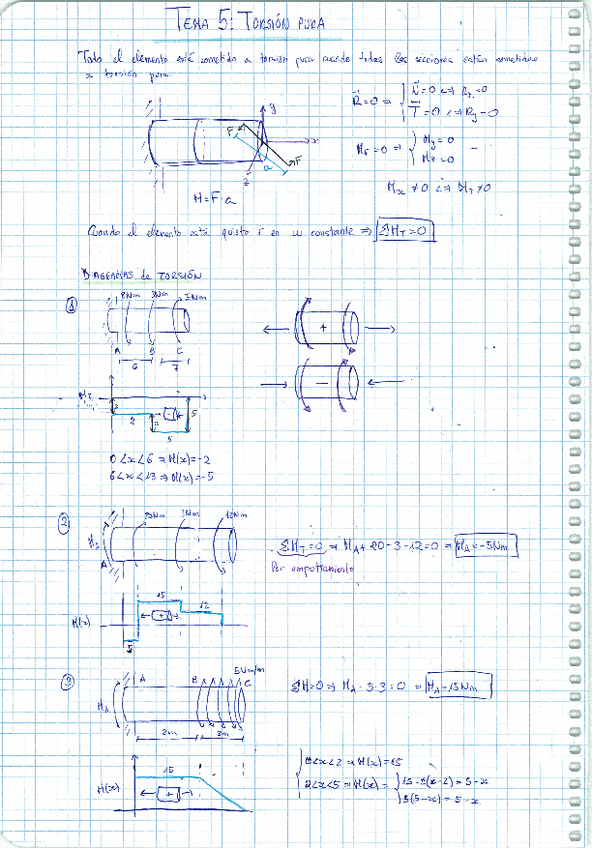 TEMA 5: TORSIÓN PURA
Todo el elemento está sometido a torsión pura cuando todas las secciones están sometidas
a torsión pura.
R=0 ⇒ { N=0 ⇔ Rx=0
T=0 ⇔ Ry=0
MF=0 ⇒ { My=0
Mz=0
Mx≠0 ⇔ MT≠0
y
F
x
F
a
z
M=F·a
Cuando el elemento está quieto ó en ω constante ⇒ ΣMT=0
DIAGRAMAS de TORSIÓN
①
3Nm
A B C
6 7
+
-
MT
2
5
5
0<x<6 ⇒ M(x)=-2
6<x<13 ⇒ M(x)=-5
②
20Nm 3Nm 12Nm
MA
A
ΣMT=0 ⇒ MA+20-3-12=0 ⇒ MA=-5Nm
Por empotramiento
M(x)
15
12
+
5
③
A B C
5Nm/m
MA
2m 3m
ΣM=0 ⇒ MA-3·5=0 ⇒ MA=15Nm
M(x)
15
+
0<x<2 ⇒ M(x)=15
2<x<5 ⇒ M(x)=